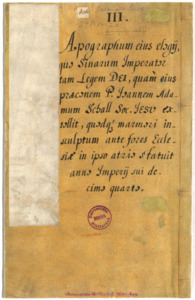 III.
Apographum eius elogij,
quo Sinarum Imperator
tam Legem DEI, quam eius
præconem P. Ioannem Ada-
mum Schall Soc. IESV ex-
tollit, quodq; marmori in-
sculptum ante fores Eccle-
siæ in ipso atrio statuit
anno Imperij sui de-
cimo quarto.